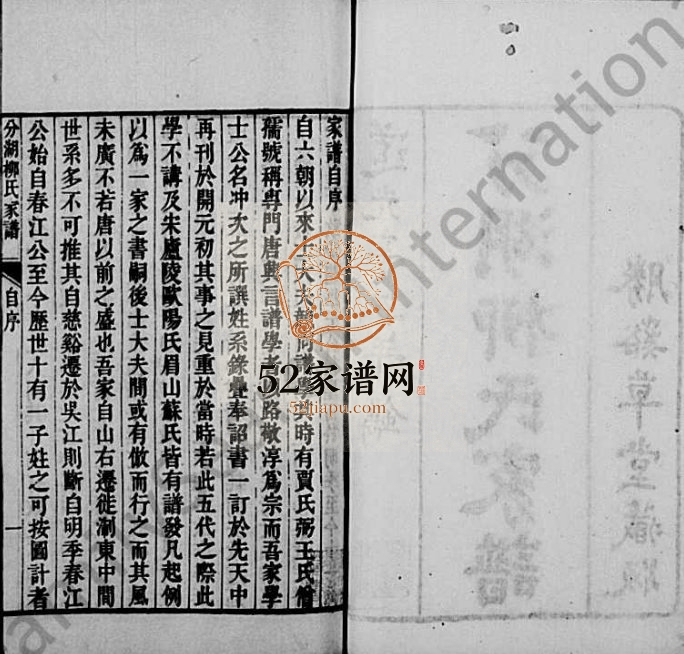 家譜自序
自六朝以來士大夫
時有賈氏弼王氏儈
孺號稱專門唐興言譜學者
路敬淳爲宗而吾家學
士公名冲次之所譔姓系錄疊奉詔書一訂於先天中
再刊於開元初其事之見重於當時若此五代之際此
學不講及宋廬陵歐陽氏眉山蘇氏皆有譜發凡起例
以爲一家之書嗣後士大夫間或有倣而行之而其風
未廣不若唐以前之盛也吾家自山右遷徙淛東中間
世系多不可推其自慈谿遷於吳江則斷自明季春江
公始自春江公至今歷世十有一子姓之可按圖計者
分湖柳氏家譜
自序
一
勝谿草堂藏版
柳氏家譜
52家谱网
52jiapu.com
nternation